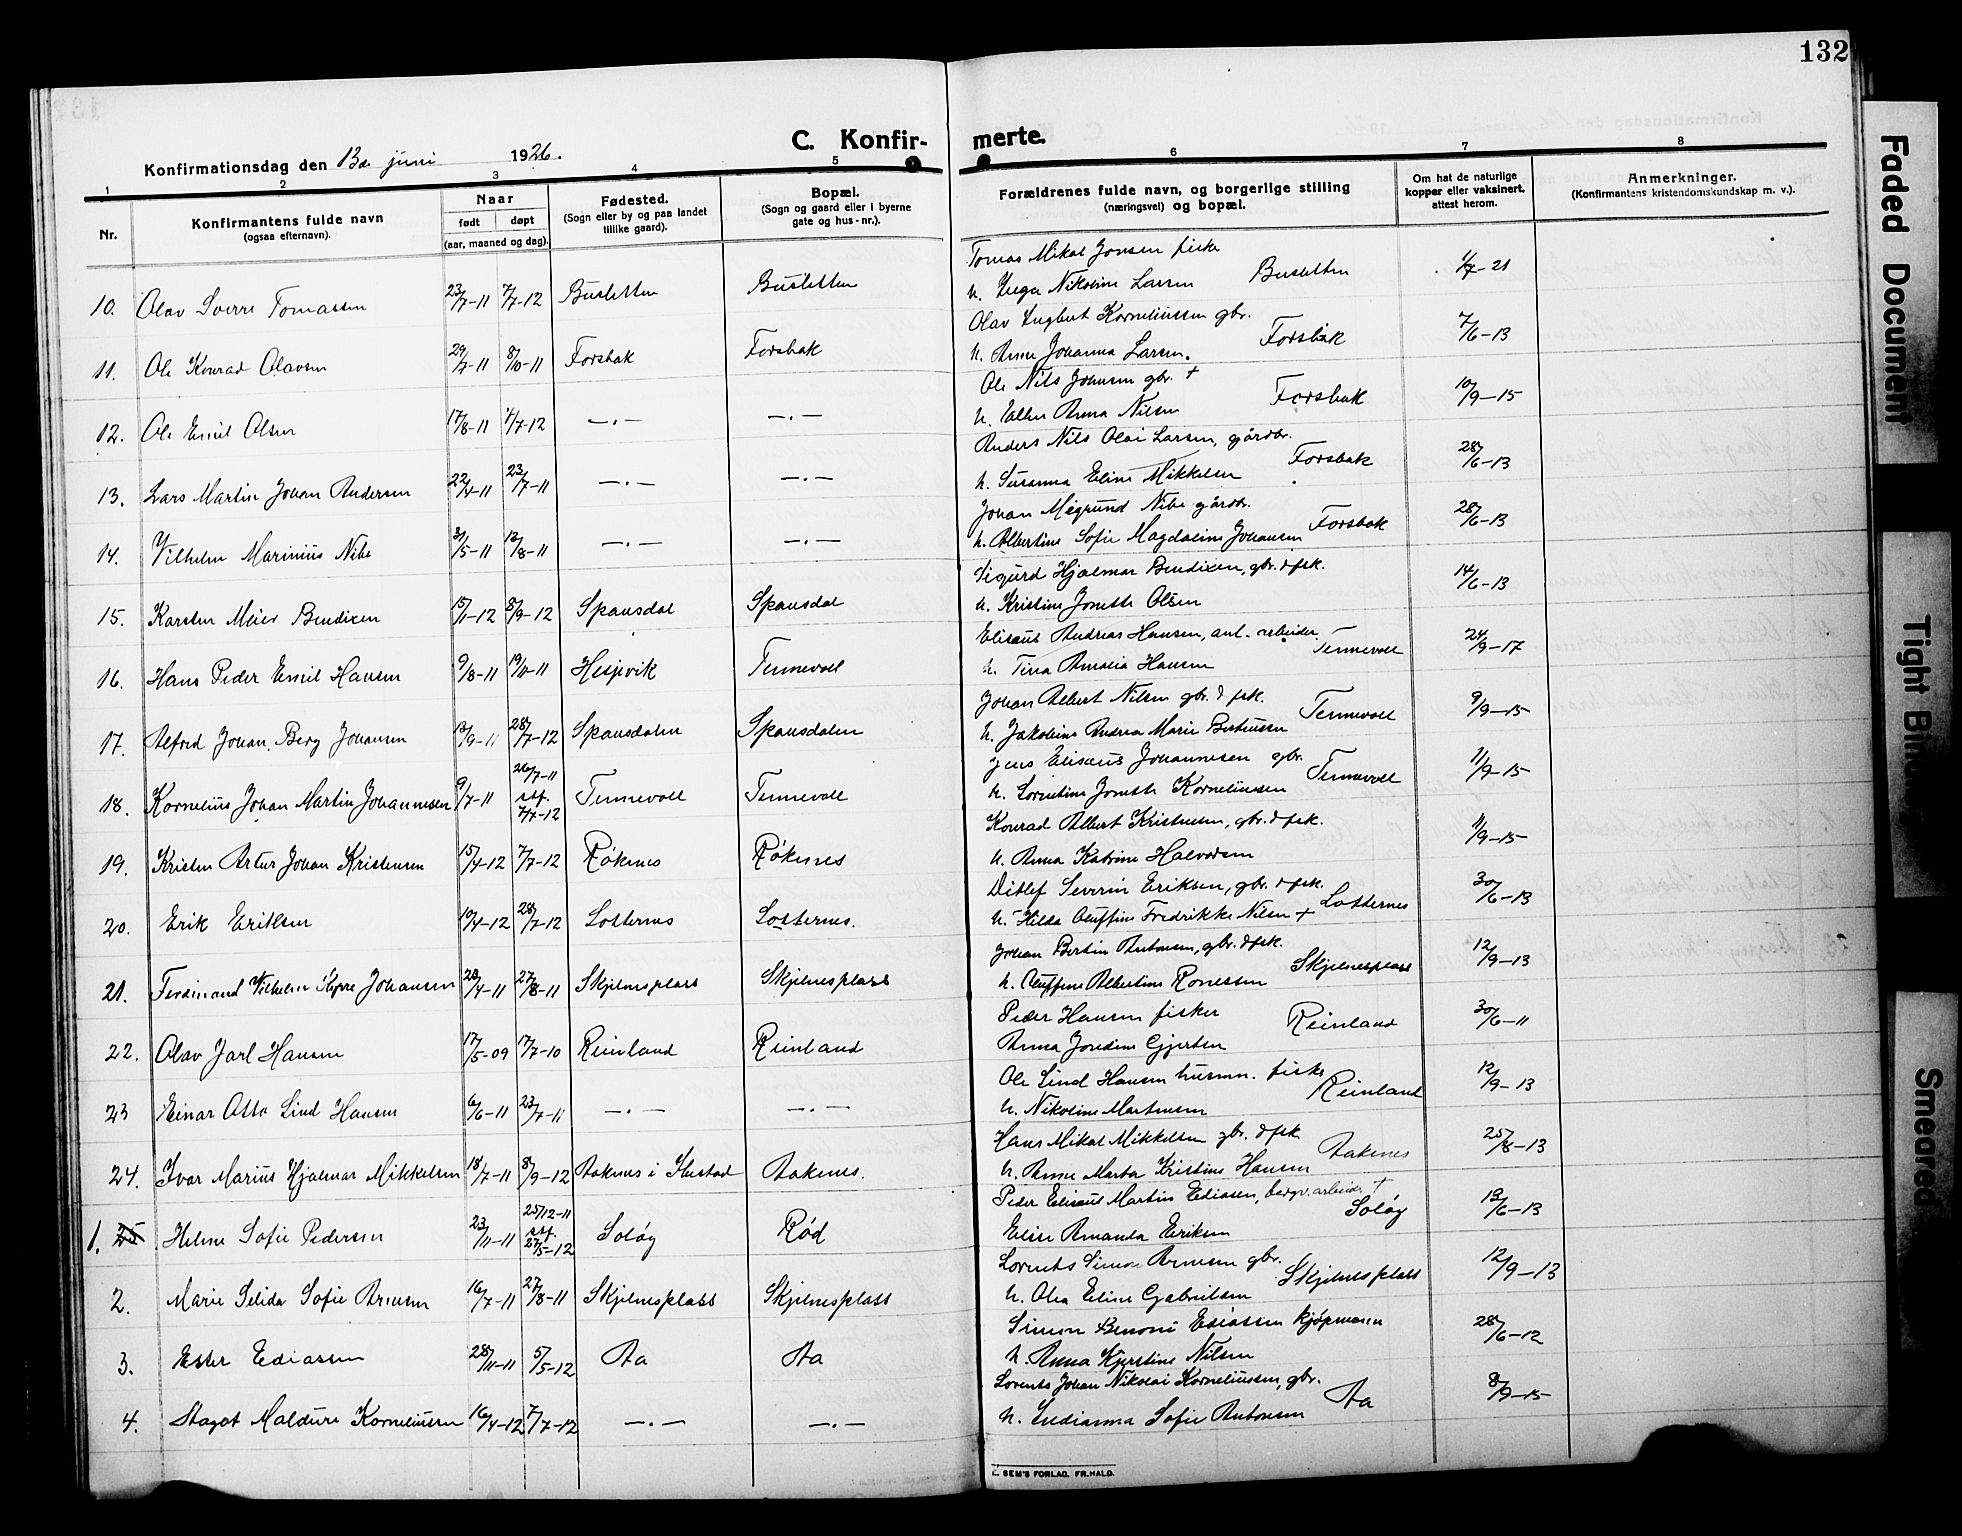 132
C. Konfir-
merte.
Konfirmationsdag den 13de juni 1926.
1 2 3 4 5 6 7 8
Nr.
Konfirmantens fulde navn
(ogsaa efternavn).
Naar
født døpt
(aar, maaned og dag).
Fødested.
(Sogn eller by og paa landet
tillike gaard).
Bopæl.
(Sogn og gaard eller i byerne
gate og hus-nr.).
Forældrenes fulde navn, og borgerlige stilling
(næringsvei) og bopæl.
Om hat de naturlige
kopper eller vaksinert,
attest herom.
Anmerkninger.
(Konfirmantens kristendomskundskap m. v.).
Tomas Mikal Jonsen fisker
10. Olav Sverre Tomassen 23/7-11 7/7-12 Busletten Busletten h. Inga Nikoline Larsen Busletten 1/7-21
Olav Ingbert Korneliussen gbr.
11. Ole Konrad Olavsen 29/7-11 8/10-11 Forsbak Forsbak h. Anne Johanna Larsen. Forsbak 7/6-13
Ole Nils Johnsen gbr. +
12. Ole Emil Olsen 17/8-11 7/7-12 —.— —.— h. Ellen Anna Nilsen Forsbak 10/9-15
Anders Nils Olai Larsen, gårdbr.
13. Lars Martin Johan Andersen 22/4-11 23/7-11 —.— —.— h. Susanna Eline Mikkelsen Forsbak 28/6-13
Johan Megrund Nibe gårdbr.
14. Vilhelm Marinius Nibe 31/5-11 13/8-11 —.— —.— h. Albertine Sofie Magdaline Johansen Forsbak 28/6-13
Sigurd Hjalmar Bendixen, gbr. & fsk.
15. Karsten Meier Bendixen 15/1-12 8/9-12 Spansdal Spansdal h. Kristine Jonette Olsen 14/6-13
Elisæus Andreas Hansen, anl. arbeider
16. Hans Peder Emil Hansen 9/8-11 19/11-11 Hesjevik Tennevoll h. Tina Amalia Hansen Tennevoll 24/9-17
Johan Albert Nilsen gbr. & fsk.
17. Alfred Johan Berg Johansen 13/9-11 28/7-12 Spansdalen Spansdalen h. Jakobine Andrea Marie Berteussen Tennevoll 9/9-15
Jens Elisæus Johannesen gbr.
18. Kornelius Johan Martin Johannesen 9/7-11 26/7-11 stf. 7/7-12 Tennevoll Tennevoll h. Lorentine Jonette Korneliussen Tennevoll 11/9-15
Konrad Albert Kristensen, gbr. & fsk.
19. Kristen Artur Johan Kristensen 15/4-12 7/7-12 Røkenes Røkenes h. Anna Katrine Halvorsen 11/9-15
Ditlef Severin Eriksen, gbr. & fsk.
20. Erik Eriksen 10/4-12 28/7-12 Lotternes Lotternes. h. Hilda Oluffine Fredrikke Nilsen + Lotternes 30/6-13
Johan Bertin Antonsen, gbr. & fsk.
21. Ferdinand Vilhelm Skjerve Johansen 28/4-11 27/8-11 Skjelnesplass Skjelnesplass h. Oluffine Albertine Ronessen Skjelnesplass 12/9-13
Peder Hansen fisker
22. Olav Jarl Hansen 17/5-09 17/7-10 Reinland Reinland Anna Joredine Gjertsen Reinland 30/6-11
Ole Lind Hansen husmn. fisker
23 Einar Otto Lind Hansen 6/6-11 23/7-11 —.— —.— h. Nikoline Martinsen Reinland 12/9-13
Hans Mikal Mikkelsen gbr. & fsk
24. Ivar Marius Hjalmar Mikkelsen 18/7-11 8/9-12 Aakenes i Ibestad Aakenes. h. Anne Marta Kristine Hansen Aakenes 25/8-13
Peder Elisæus Martin Ediasen, bergv. arbeider +
1. 25 Helene Sofie Pedersen 23/11-11 25/12-11 stf. 27/5-12 Soløy Rød Elise Amanda Eriksen Soløy 13/6-13
Lorents Simon Arnesen gbr.
2. Marie Selida Sofie Arnesen 16/7-11 27/8-11 Skjelnesplass Skjelnesplass h. Olea Eline Gabrielsen Skjelnesplass 12/9-13
Simon Benoni Ediassen kjøpmann
3. Ester Ediassen 28/11-11 5/5-12 Aa Aa h. Anna Kjerstine Nilsen 28/6-12
Lorents Johan Nikolai Korneliussen, gbr.
4. Dagot Maldure Korneliussen 16/4-12 7/7-12 —.— —.— h. Indianna Sofie Antonsen Aa 8/9-15
E. SEM'S FORLAG, FR.HALD.
Faded Document
Tight Bin
Smeared